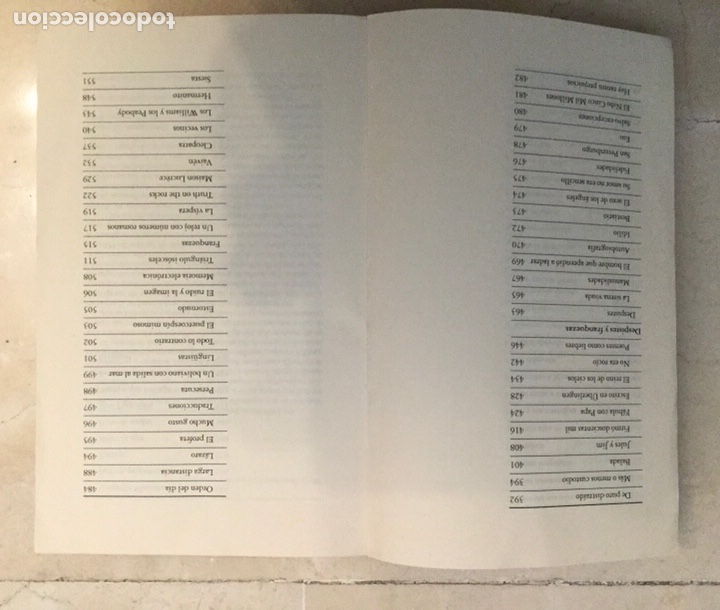 De puro distraído 392
Más o menos custodio 394
Balada 401
Jules y Jim 408
Firmó doscientas mil 416
Fábula con Papa 424
Escrito en Überlingen 428
El reino de los cielos 434
No era rocío 442
Puentes como liebres 446
Despistes y franquezas
Despistes 463
La sirena viuda 465
Manualidades 467
El hombre que aprendió a ladrar 469
Autobiografía 470
Idilio 472
Bestiario 473
El sexo de los ángeles 474
Su amor no era sencillo 475
Fidelidades 476
San Petersburgo 478
Eso 479
Salvo excepciones 480
El Niño Cinco Mil Millones 481
Hay tantos prejuicios 482
Orden del día 484
Larga distancia 488
Lázaro 494
El profeta 495
Mucho gusto 496
Traducciones 497
Persecuta 498
Un boliviano con salida al mar 499
Lingüistas 501
Todo lo contrario 502
El puercoespín mimoso 503
Estornudo 505
El ruido y la imagen 506
Memoria electrónica 508
Triángulo isósceles 511
Franquezas 515
Un reloj con números romanos 517
La víspera 519
Truth on the rocks 522
Maison Lucrèce 529
Vaivén 532
Cleopatra 537
Los vecinos 540
Los Williams y los Peabody 543
Hermanito 548
Siesta 551
todocoleccion